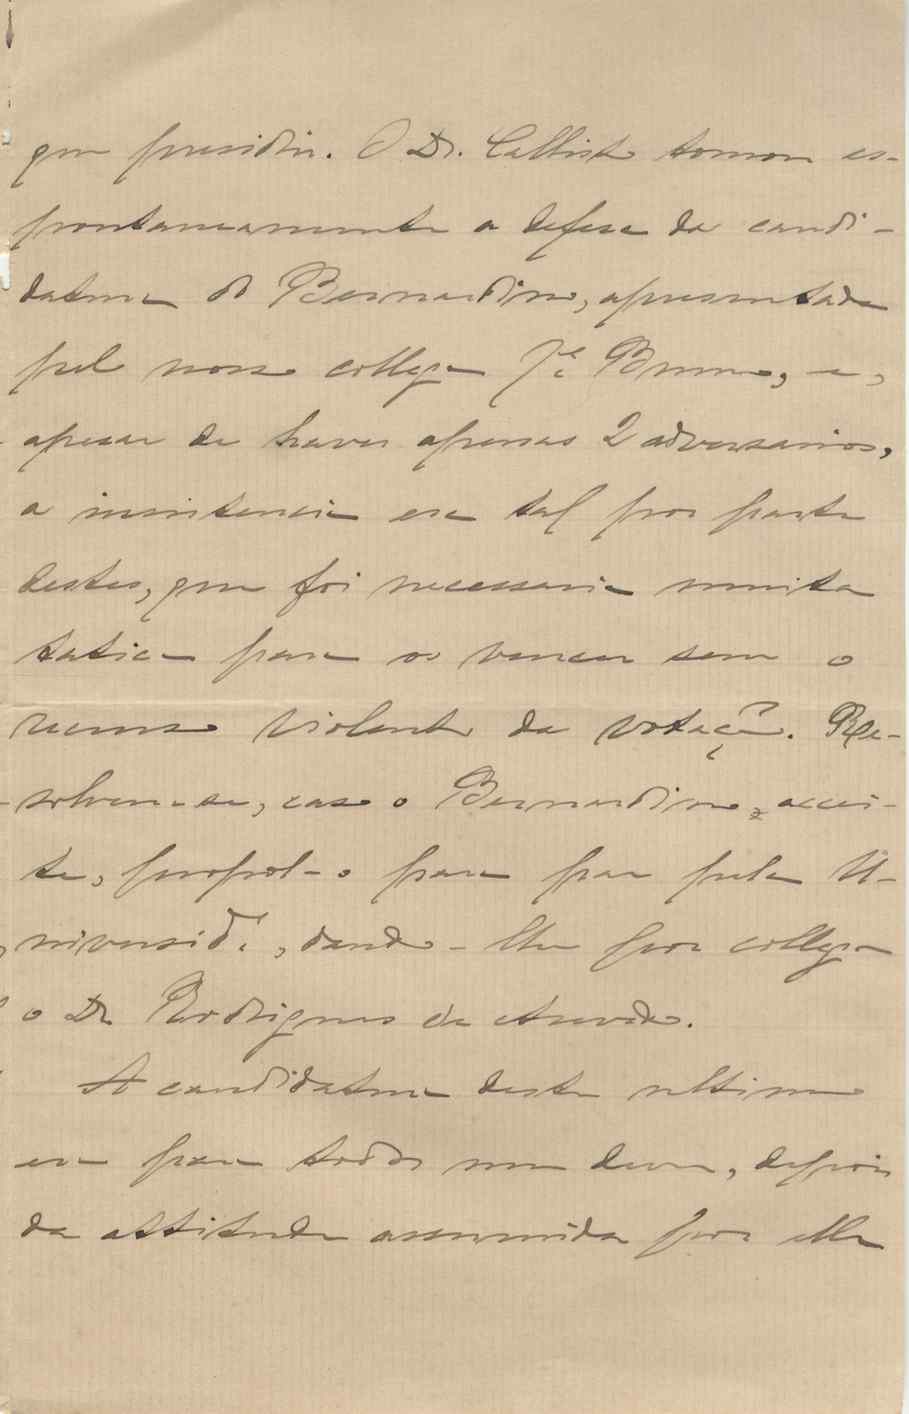 que presidiu. O Dr. Callisto tomou es-
pontaneamente a defesa da candi-
datura do Bernardino, apresentada
pelo nosso collega Je Bruno, e,
apesar de haver apenas 2 adversarios,
a insistencia era tal por parte
destes, que foi necessaria muita
tatica para os vencer sem o
recurso violento da votação. Re-
solveu-se, caso o Bernardino accei-
te, propol-o para par pela U-
niverside, dando-lhe por collega
o Dr Rodrigues de Azevedo.
A candidatura deste ultimo
era para todos um dever, depois
da attitude assumida por elle